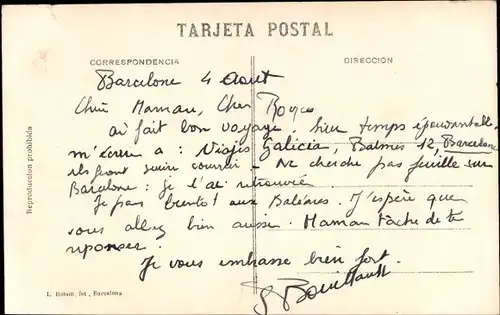 TARJETA POSTAL
CORRESPONDENCIA
DIRECCION
Barcelone 4 Aout
Chère Maman, Cher
ai fait bon voyage, hier temps épouvantable
m'écrire a : Viajes Galicia, Balmes 12, Barcelone
ils font suivre courrier - Ne cherche pas feuille sur
Barcelone : je l'ai retrouvée
Je pars bientot aux Baléares. J'espère que
vous allez bien aussi. Maman tache de te
reposer.
Je vous embrasse bien fort.
Reproducción prohibida
L. Roisin, fot., Barcelona